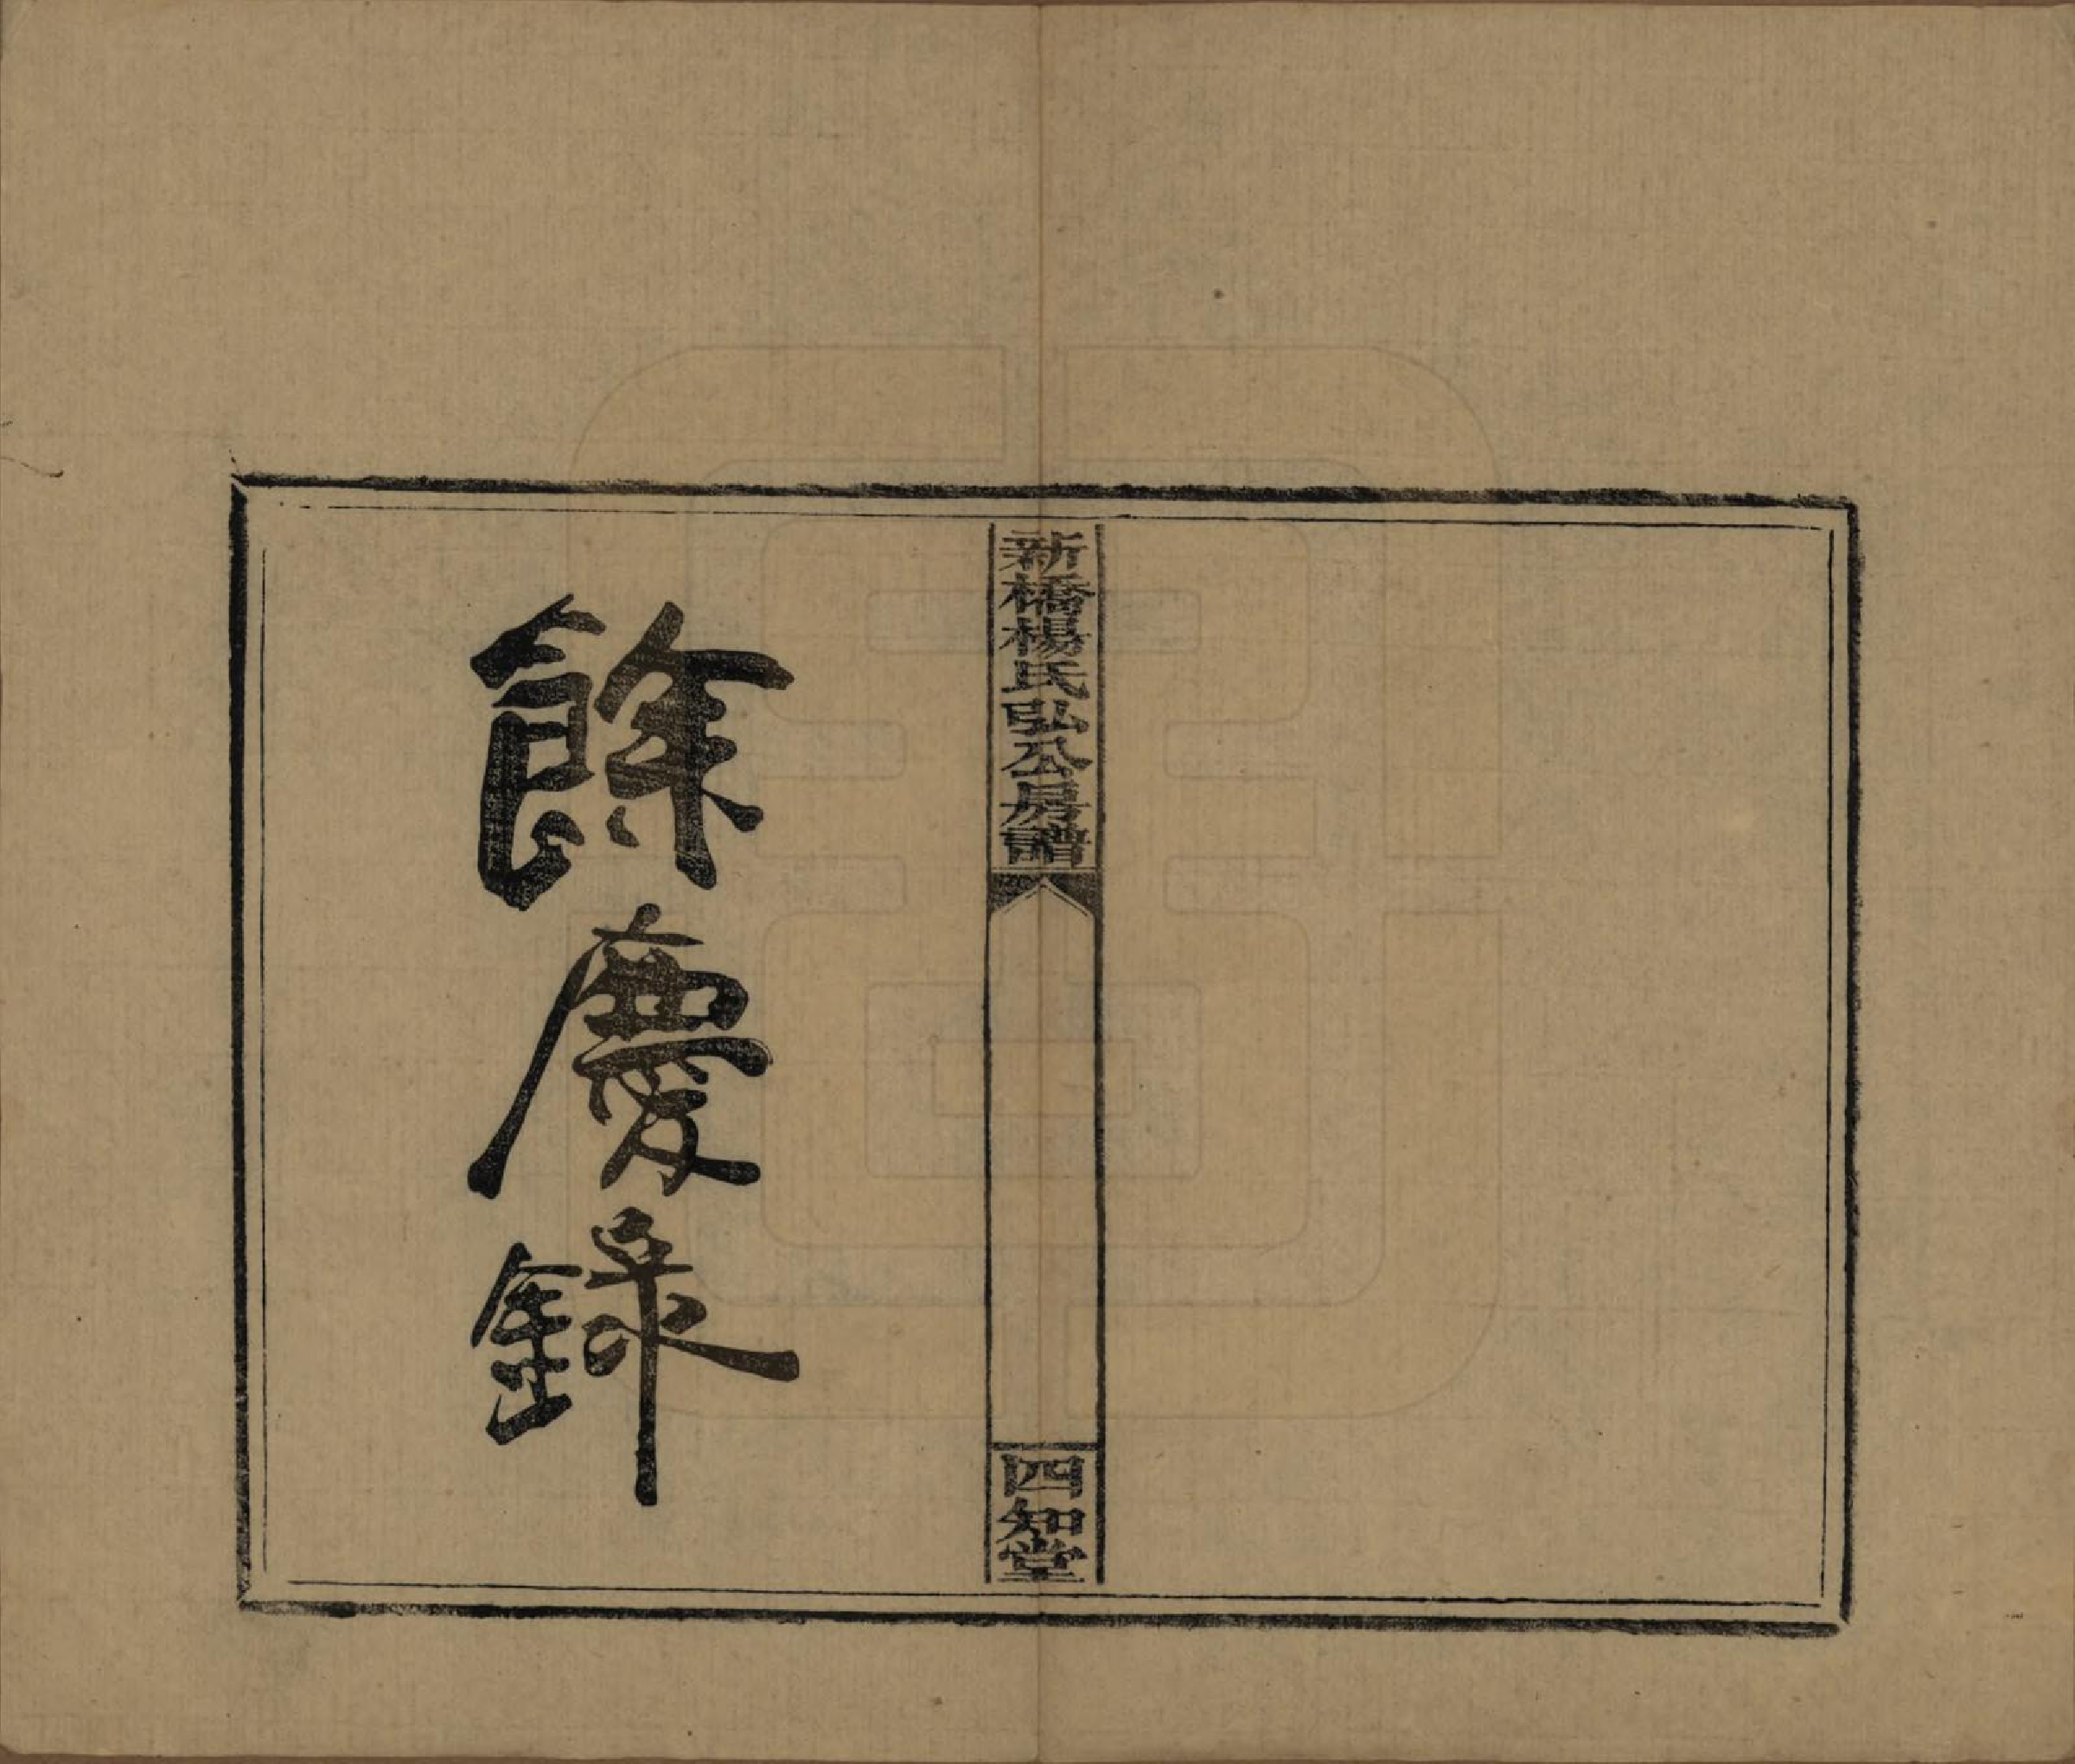 新橋楊氏弘公房譜
四知堂
餘慶錄